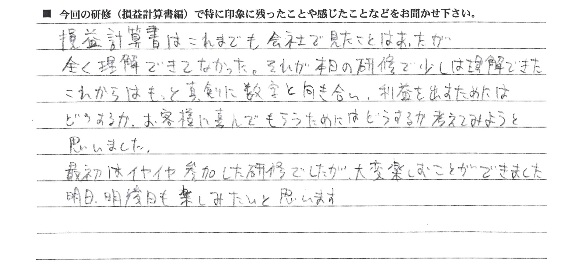 ■ 今回の研修（損益計算書編）で特に印象に残ったことや感じたことなどをお聞かせ下さい。
損益計算書はこれまでも会社で見たことはあったが
全く理解できてなかった。それが本日の研修で少しは理解できた
これからはもっと真剣に数字と向き合い、利益を出すためには
どうするか、お客様に喜んでもらうためにはどうするか考えてみようと
思いました。
最初はイヤイヤ参加した研修でしたが、大変楽しむことができました
明日、明後日も楽しみたいと思います